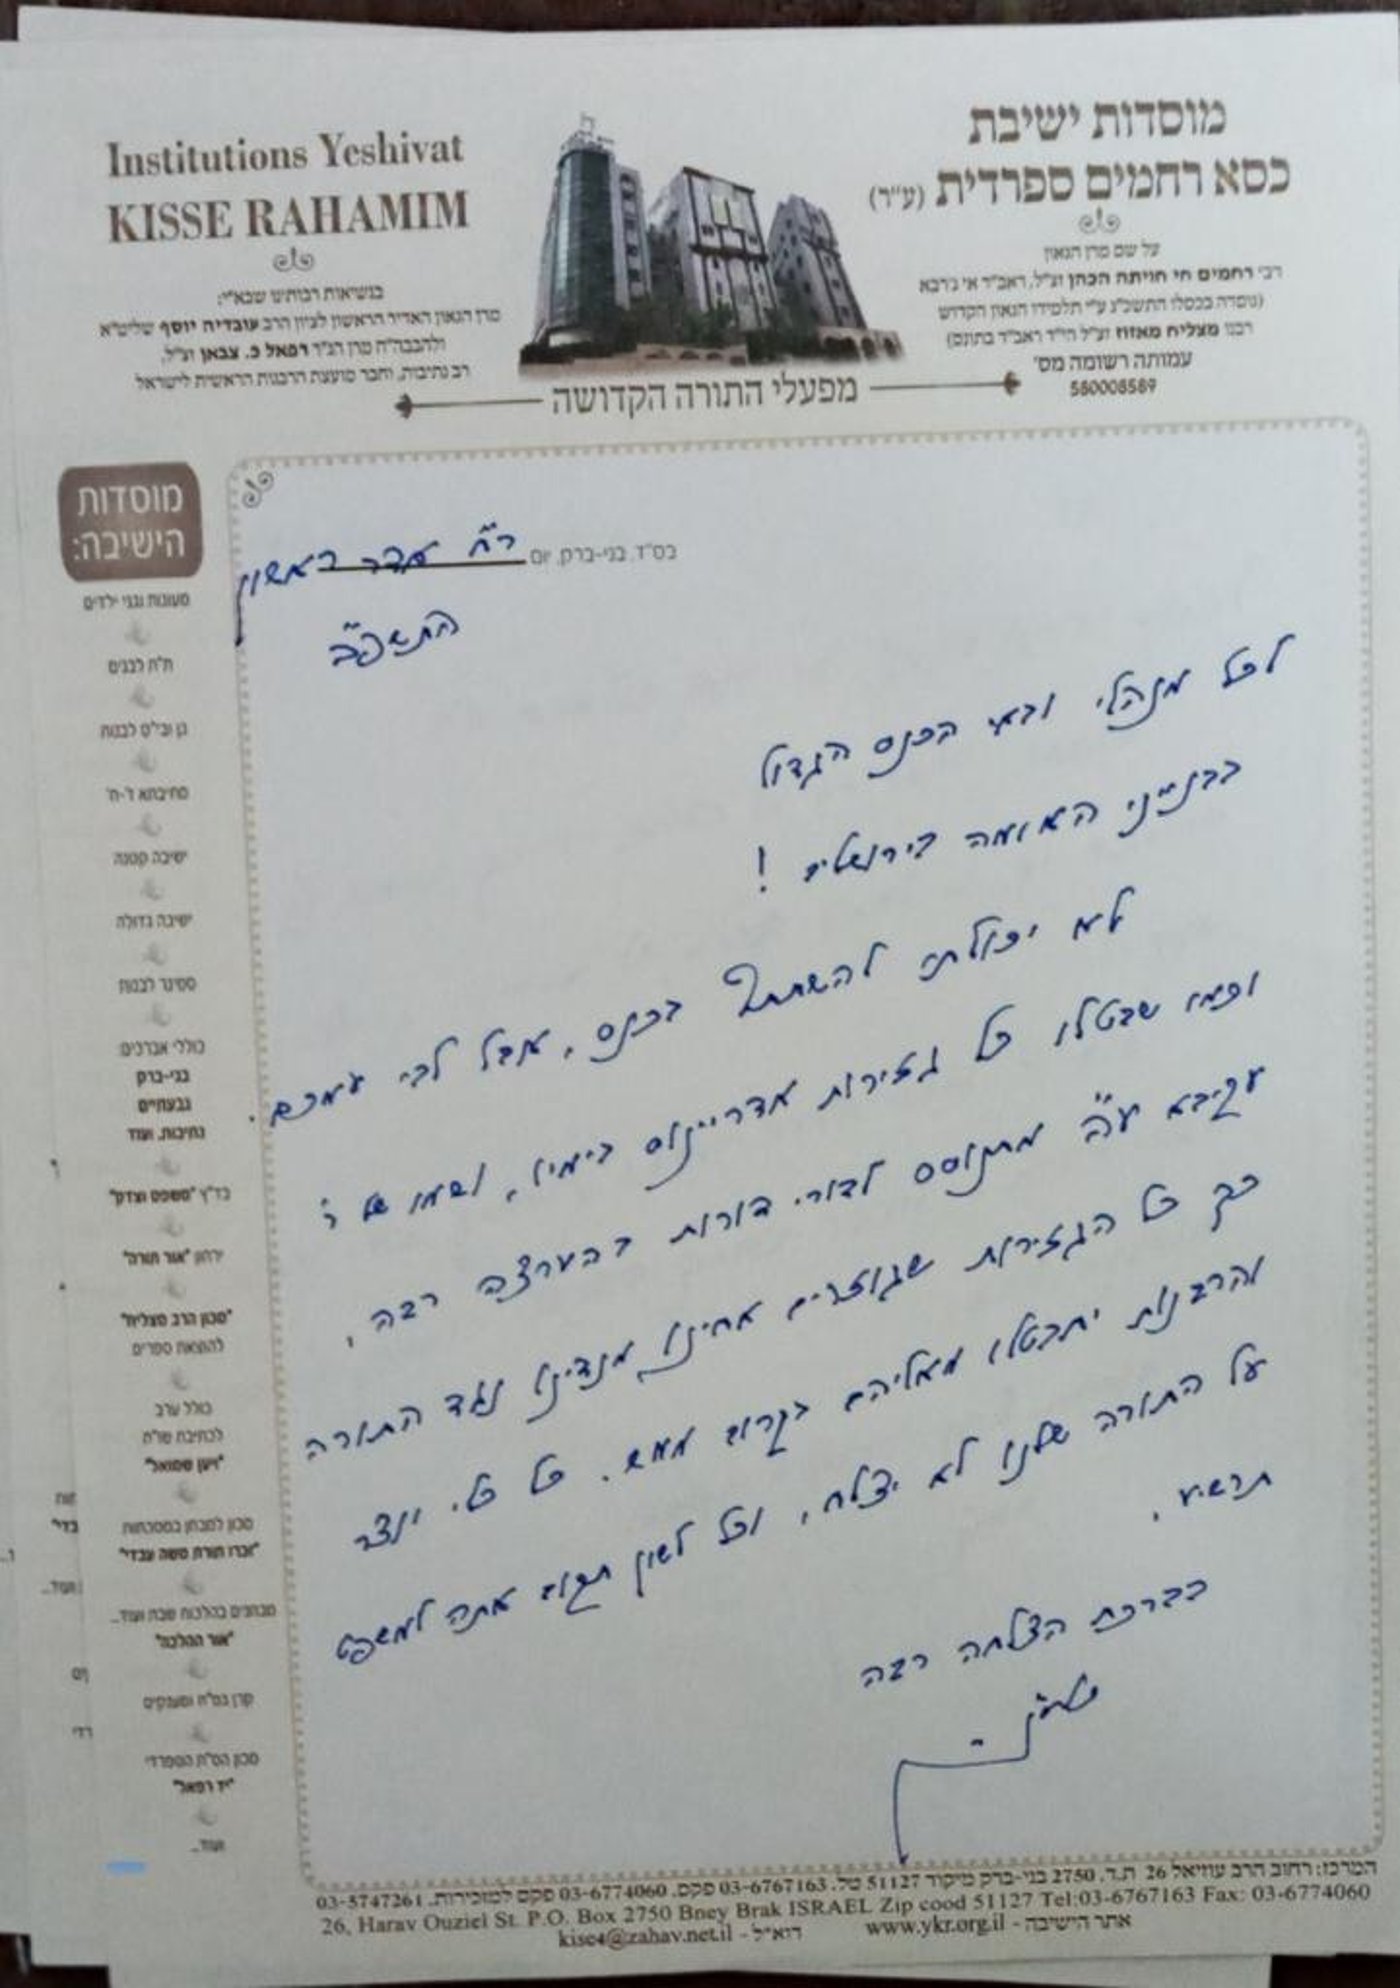 מוסדות ישיבת
כסא רחמים ספרדית (ע"ר)
על שם מרן הגאון
רבי רחמים חי חויתה הכהן זצ"ל, ראב"ד אי ג'רבא
(נוסדה בכסלו התשכ"ג ע"י תלמידו הגאון הקדוש
רבנו מצליח מאזוז זצ"ל הי"ד ראב"ד בתונס)
עמותה רשומה מס'
580008589
Institutions Yeshivat
KISSE RAHAMIM
בנשיאות רבותינו שבא"י:
מרן הגאון האדיר הראשון לציון הרב עובדיה יוסף שליט"א
ולהבבה"ח מרן הג"ר רפאל כ. צבאן זצ"ל,
רב נתיבות, וחבר מועצת הרבנות הראשית לישראל
מפעלי התורה הקדושה
בס"ד, בני-ברק, יום ר"ח אדר ראשון
התשפ"ב
לכל מנהלי ובאי הכנס הגדול
בבנייני האומה בירושלים !
לא יכולתי להשתתף בכנס, אבל לבי עמכם.
וכמו שבטלו כל גזירות אדריינוס בימיו, ושמו של ר'
עקיבא ע"ה מתנוסס לדורי דורות בהערצה רבה,
כך כל הגזירות שגוזרים אחינו מנדינו נגד התורה
והרבנות יתבטלו מאליהם בקרוב ממש. כל כלי יוצר
על התורה שלנו לא יצלח, וכל לשון תקום אתה למשפט
תרשיע.
בברכת הצלחה רבה
מוסדות
הישיבה:
מעונות וגני ילדים
ת"ת לבנים
גן ובי"ס לבנות
מתיבתא ז'-ח'
ישיבה קטנה
ישיבה גדולה
סמינר לבנות
כוללי אברכים:
בני-ברק
גבעתיים
נתיבות, ועוד
בד"ץ "משפט וצדק"
ירחון "אור תורה"
"מכון הרב מצליח"
להוצאת ספרים
כולל ערב
לכתיבת סת"ם
"ויען שמואל"
מכון למבחן במסכתות
"זכרו תורת משה עבדי"
מבחנים בהלכות שבת ועוד...
"אור ההלכה"
קרן גמ"ח ומענקים
מכון הס"ת הספרדי
"יד רפאל"
ועוד...
המרכז: רחוב הרב עוזיאל 26 ת.ד. 2750 בני-ברק מיקוד 51127 טל. 03-6767163 פקס. 03-6774060 פקס למזכירות. 03-5747261
26, Harav Ouziel St. P.O. Box 2750 Bney Brak ISRAEL Zip cood 51127 Tel:03-6767163 Fax: 03-6774060
אתר הישיבה - www.ykr.org.il דוא"ל - kise4@zahav.net.il